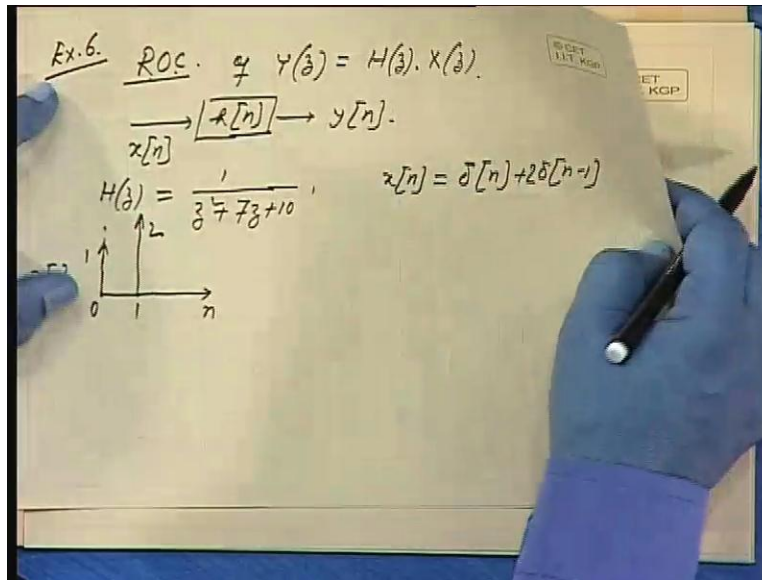 Ex.6. ROC. of Y(z) = H(z). X(z).
© CET
I.I.T. KGP
CET
KGP
x[n] → h[n] → y[n].
H(z) = 1 / z² + 7z + 10 , x[n] = δ[n] + 2δ[n-1]
1 2
0 1 n